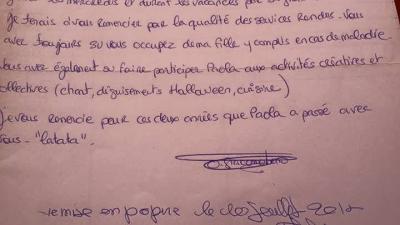 les mercredis et durant les vacances
Je tenais à vous remercier par la qualité des services rendus. Vous
avez toujours su vous occupez de ma fille y compris en cas de maladie.
Vous avez également su faire participer Paola aux activités créatives et
collectives (chant, déguisements Halloween, cuisine)
Je vous remercie pour ces deux années que Paola a passé avec
vous - "tatata".
remise en propre le